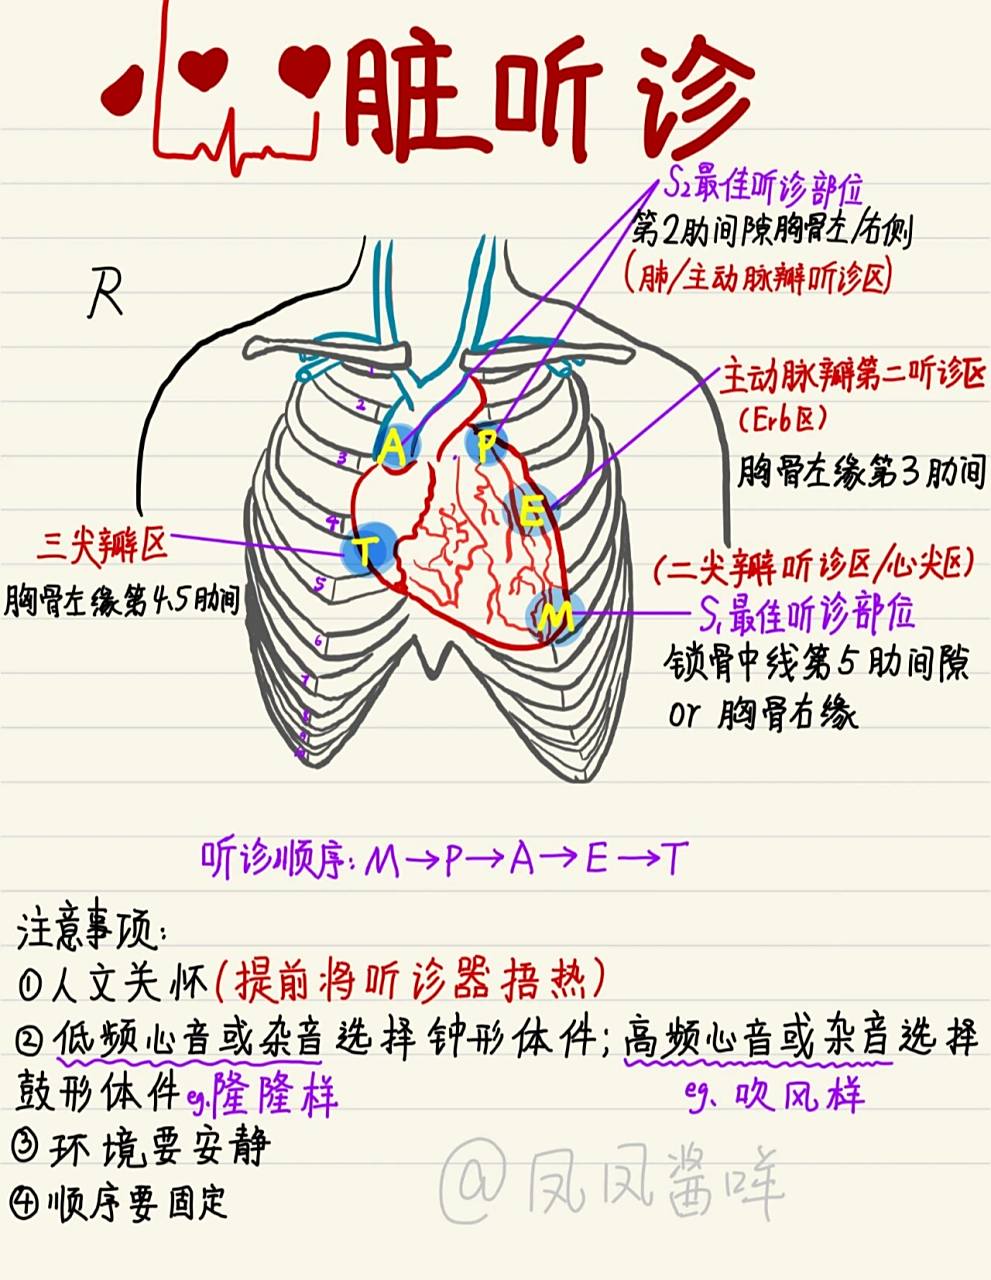 心脏听诊
S₂最佳听诊部位
第2肋间隙胸骨左/右侧
(肺/主动脉瓣听诊区)
R
主动脉瓣第二听诊区
(Erb区)
胸骨左缘第3肋间
1
2
3
4
5
6
7
8
9
10
A
P
E
T
M
三尖瓣区
胸骨左缘第4.5肋间
(二尖瓣听诊区/心尖区)
S₁最佳听诊部位
锁骨中线第5肋间隙
or 胸骨右缘
听诊顺序:M→P→A→E→T
注意事项:
①人文关怀(提前将听诊器捂热)
②低频心音或杂音选择钟形体件;高频心音或杂音选择
鼓形体件eg.隆隆样 eg、吹风样
③环境要安静
④顺序要固定
@凤凤酱咩